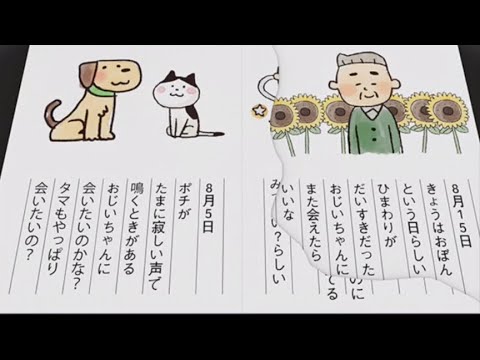 8月15日
きょうはおぼん
という日らしい
ひまわりが
だいすきだった
のに
おじいちゃんに
てる
また会えたら
いいな
い？らしい
8月5日
ポチが
たまに寂しい声で
鳴くときがある
おじいちゃんに
会いたいのかな？
タマもやっぱり
会いたいの？